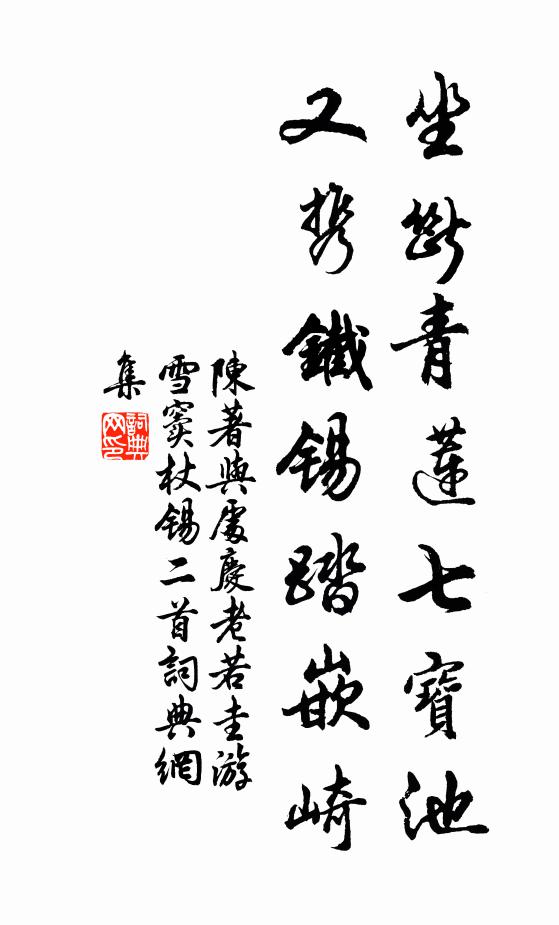 坐斷青蓮七寶池
又携鐵錫踏嵌崎
陳著與處慶老若圭游
雪竇杖錫二首詞典網
集
詞典
网印